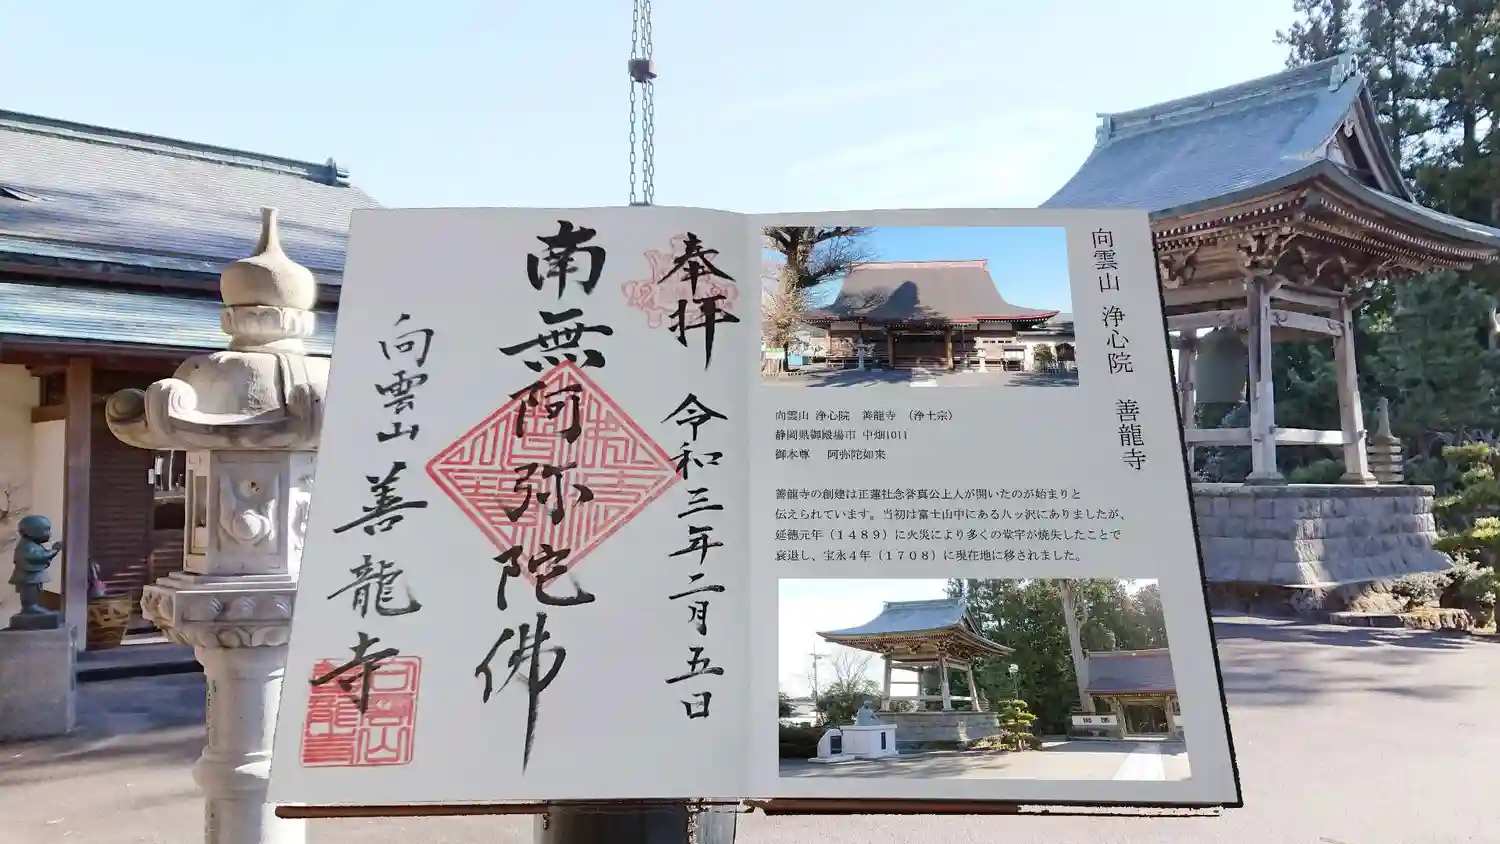 奉拝 令和三年二月五日
南無阿弥陀佛
向雲山 善龍寺
向雲山 浄心院 善龍寺
向雲山 浄心院 善龍寺 （浄土宗）
静岡県御殿場市 中畑1011
御本尊 阿弥陀如来
善龍寺の創建は正蓮社念誉真公上人が開いたのが始まりと
伝えられています。当初は富士山中にある八ッ沢にありましたが、
延徳元年（１４８９）に火災により多くの堂宇が焼失したことで
衰退し、宝永４年（１７０８）に現在地に移されました。